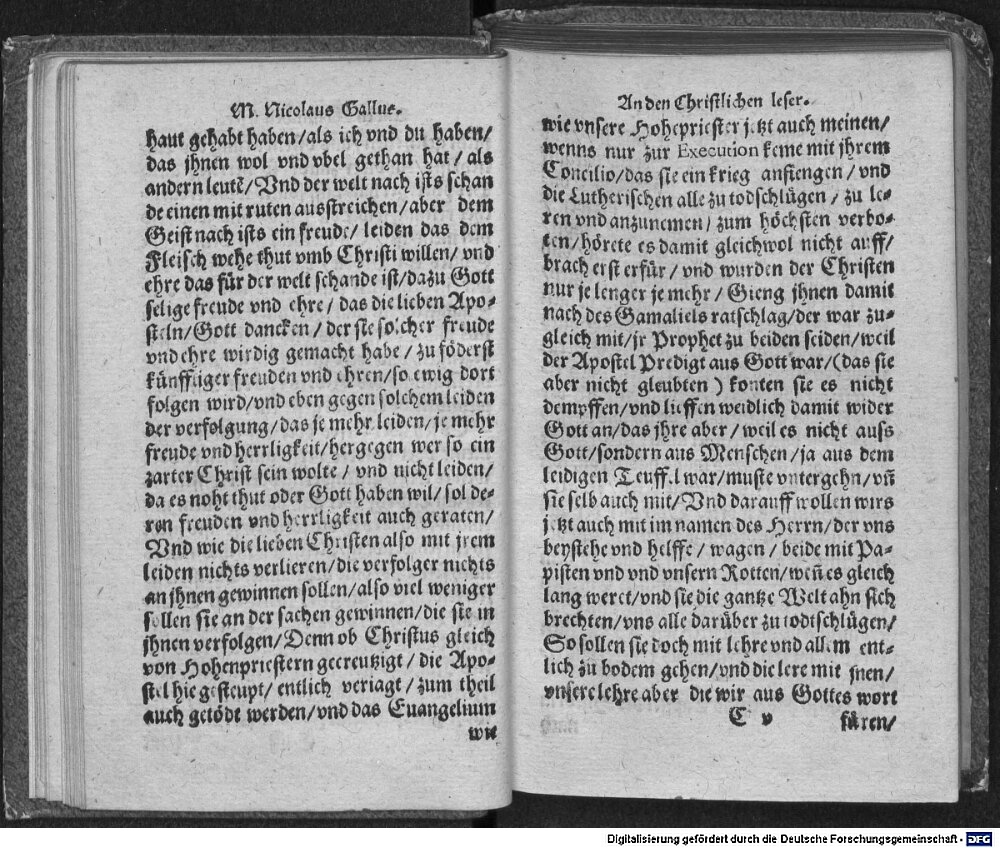 M. Nicolaus Gallus.
haut gehabt haben/als ich vnd du haben/
das jhnen wol vnd vbel gethan hat/als
andern leutē/Vnd der welt nach ists schan
de einen mit ruten ausstreichen/aber dem
Geist nach ists ein freude/leiden das dem
Fleisch wehe thut vmb Christi willen/vnd
ehre das für der welt schande ist/dazu Gott
selige freude vnd ehre/das die lieben Apo-
steln/Gott dancken/der sie solcher freude
vnd ehre wirdig gemacht habe/zu föderst
künfftiger freuden vnd ehren/so ewig dort
folgen wird/vnd eben gegen solchem leiden
der verfolgung/das je mehr leiden/je mehr
freude vnd herrligkeit/hergegen wer so ein
zarter Christ sein wolte/vnd nicht leiden/
da es noht thut oder Gott haben wil/sol de-
ren freuden vnd herrligkeit auch geraten/
Vnd wie die lieben Christen also mit jrem
leiden nichts verlieren/die verfolger nichts
an jhnen gewinnen sollen/also viel weniger
sollen sie an der sachen gewinnen/die sie in
jhnen verfolgen/Denn ob Christus gleich
von Hohenpriestern gecreutzigt/die Apo-
stel hie gesteupt/entlich veriagt/zum theil
auch getödt werden/vnd das Euangelium
wie
An den Christlichen leser.
wie vnsere Hohepriester jetzt auch meinen/
wenns nur zur Execution keme mit jhrem
Concilio/das sie ein krieg anfiengen/vnd
die Lutherischen alle zu todschlügen/zu le-
ren vnd anzunemen/zum höchsten verbo-
ten/hörete es damit gleichwol nicht auff/
brach erst erfür/vnd wurden der Christen
nur je lenger je mehr/Gieng jhnen damit
nach des Gamaliels ratschlag/der war zu-
gleich mit/jr Prophet zu beiden seiden/weil
der Apostel Predigt aus Gott war/(das sie
aber nicht gleubten) konten sie es nicht
dempffen/vnd lieffen weidlich damit wider
Gott an/das jhre aber/weil es nicht auss
Gott/sondern aus Menschen/ja aus dem
leidigen Teuffel war/muste vntergehn/vn̄
sie selb auch mit/Vnd darauff wollen wirs
jetzt auch mit im namen des Herrn/der vns
beystehe vnd helffe/wagen/beide mit Pa-
pisten vnd vnd vnsern Rotten/wen̄ es gleich
lang weret/vnd sie die gantze Welt ahn sich
brechten/vns alle darüber zu todtschlügen/
So sollen sie doch mit lehre vnd allem ent-
lich zu bodem gehen/vnd die lere mit jnen/
vnsere lehre aber die wir aus Gottes wort
C v füren/
Digitalisierung gefördert durch die Deutsche Forschungsgemeinschaft - DFG